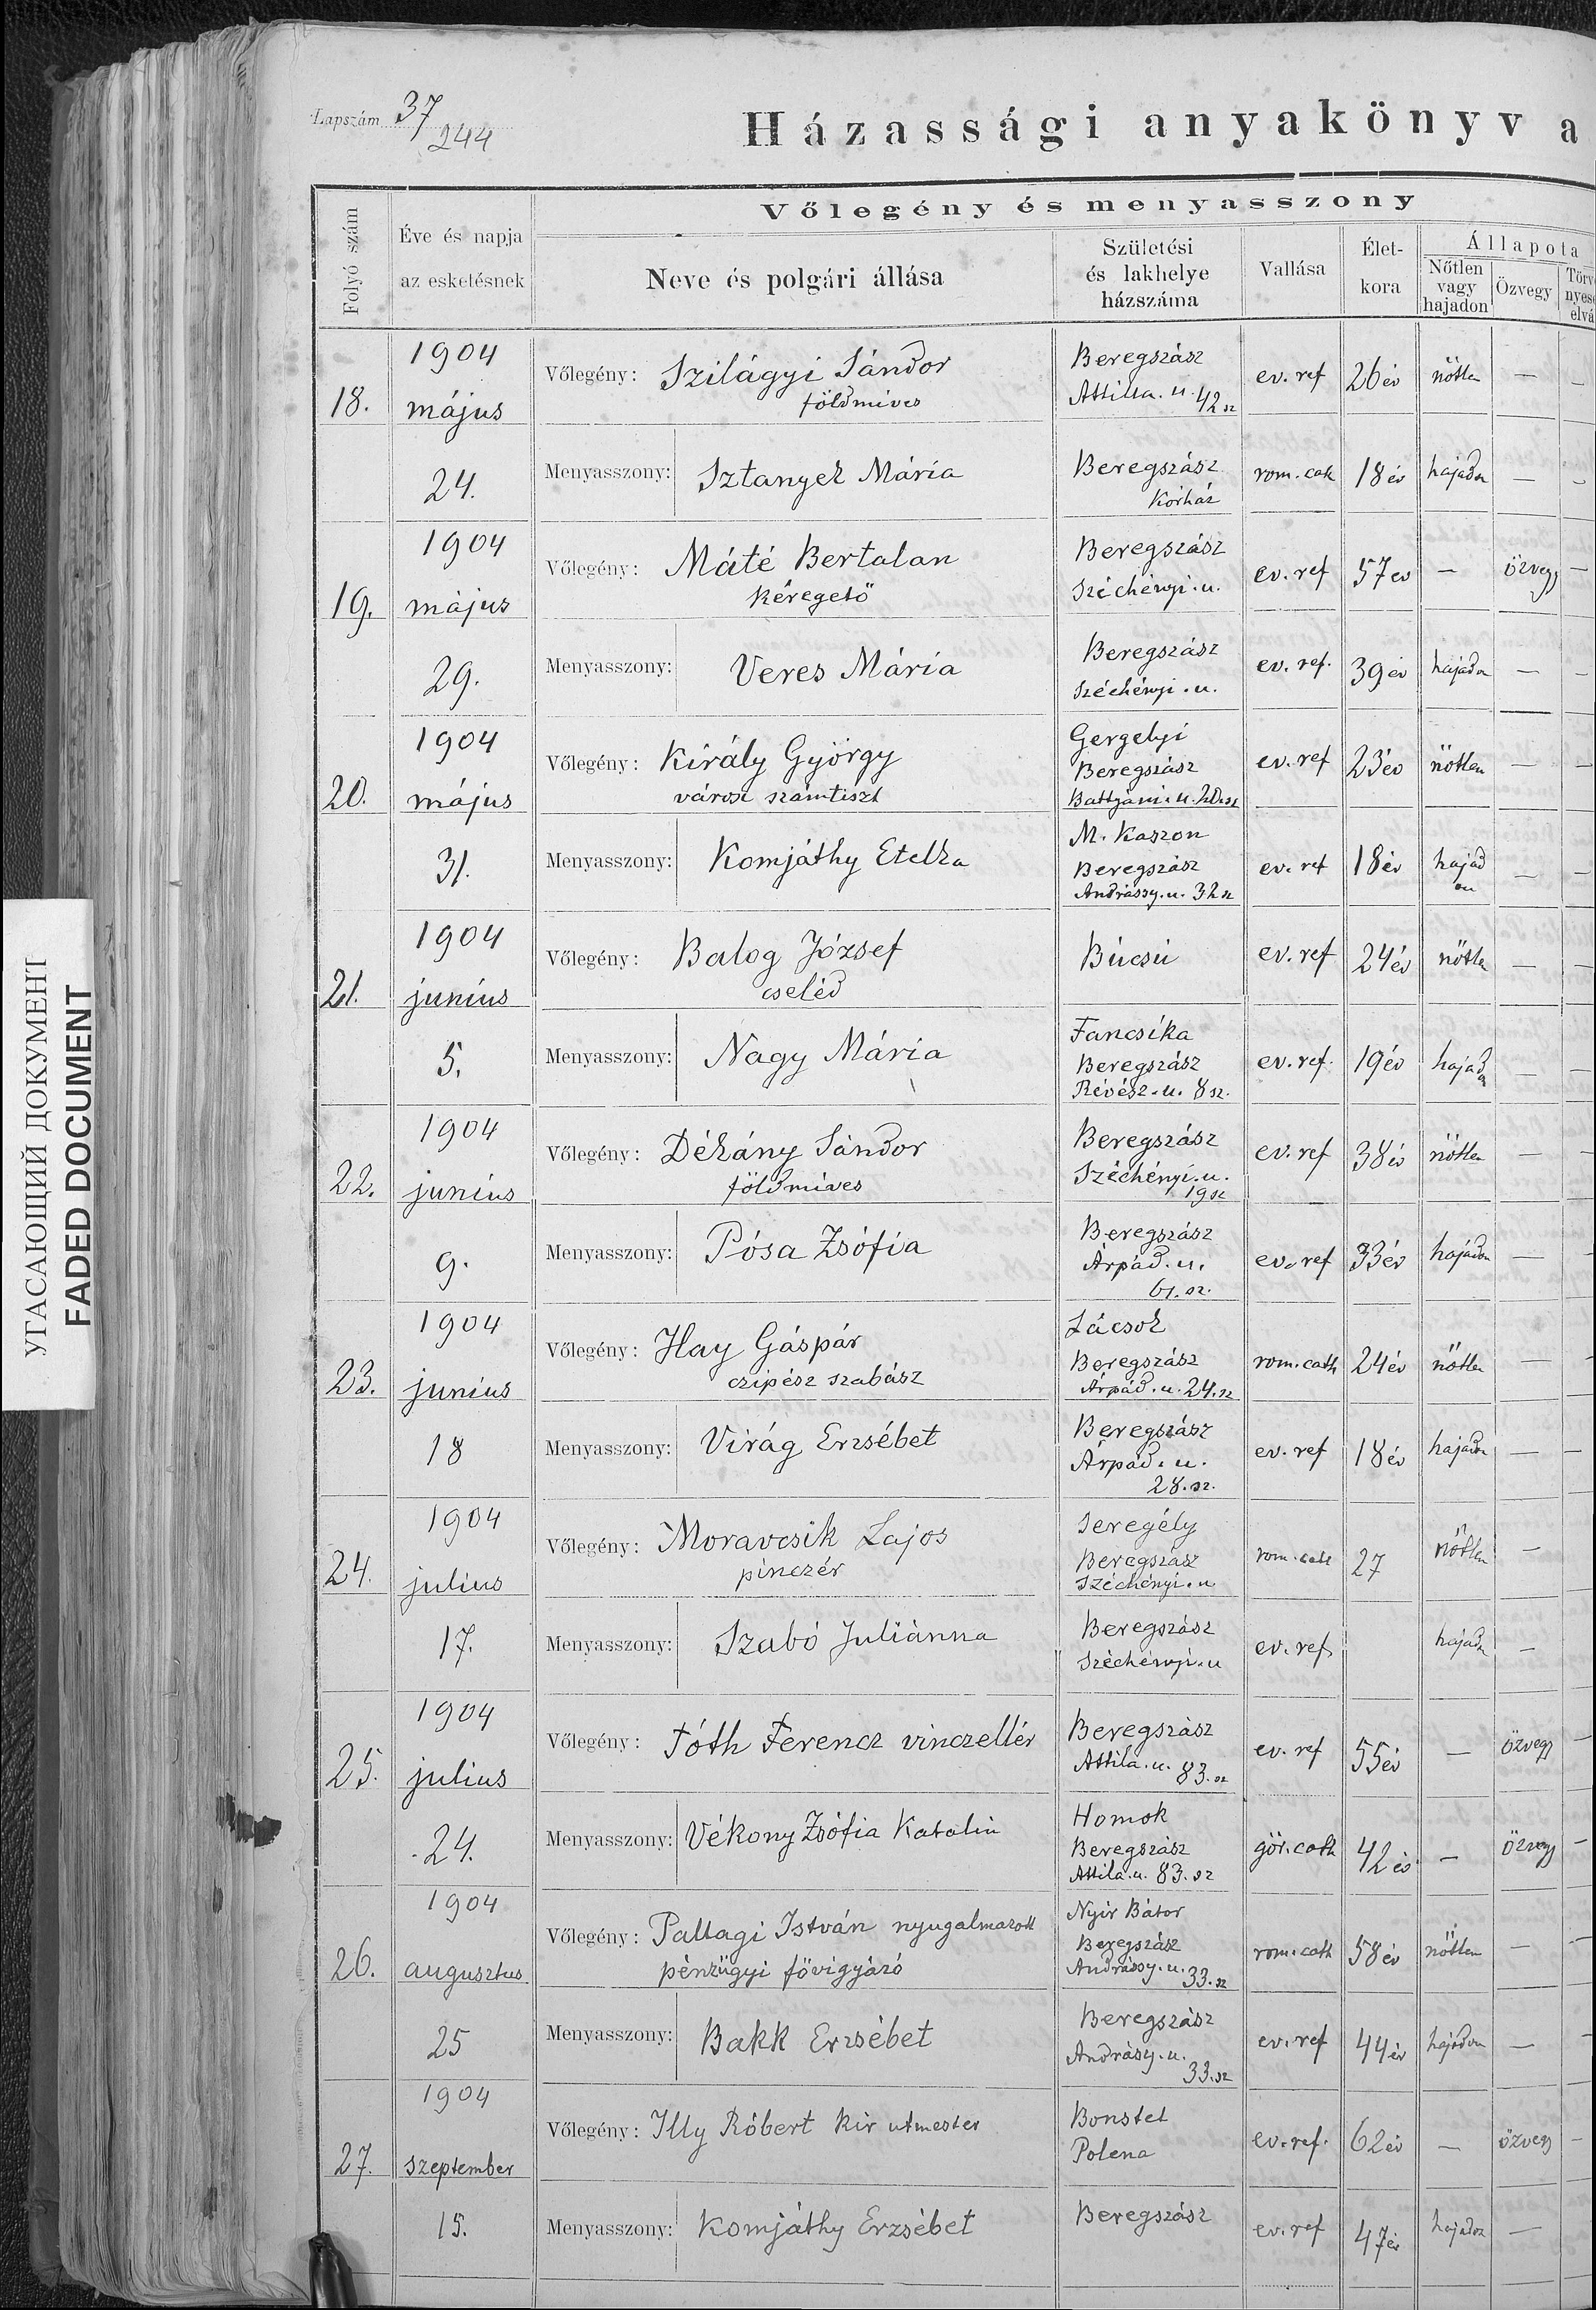 Lapszám 37
244
Házassági anyakönyv a
Vőlegény és menyasszony
Folyó szám
Éve és napja az esketésnek
Neve és polgári állása
Születési és lakhelye házszáma
Vallása
Élet-kora
Állapota
Nőtlen vagy hajadon
Özvegy
UГАСАЮЩИЙ ДОКУМЕНТ
FADED DOCUMENT
18. 1904 május 24.
Vőlegény: Szilágyi Sándor földmives
Beregszász Attilla. u. 42 sz ev. ref 26 év nőtlen — —
Menyasszony: Sztanyek Mária
Beregszász Kórház rom. cath 18 év hajadon — —
19. 1904 május 29.
Vőlegény: Máté Bertalan kéregető
Beregszász Széchényi. u. ev. ref 57 év — özvegy —
Menyasszony: Veres Mária
Beregszász Széchényi. u. ev. ref. 39 év hajadon — —
20. 1904 május 31.
Vőlegény: Király György városi számtiszt
Gergelyi Beregszász Battyáni. u. 20. sz ev. ref 23 év nőtlen — —
Menyasszony: Komjáthy Etelka
M. Kaszon Beregszász Andrássy. u. 32 sz ev. ref 18 év hajadon — —
21. 1904 junius 5.
Vőlegény: Balog József cseléd
Búcsú ev. ref 24 év nőtlen — —
Menyasszony: Nagy Mária
Fancsika Beregszász Révész. u. 8 sz. ev. ref. 19 év hajadon — —
22. 1904 junius 9.
Vőlegény: Dékány Sándor földmives
Beregszász Széchényi. u. 19 sz ev. ref 38 év nőtlen — —
Menyasszony: Pósa Zsófia
Beregszász Árpád. u. 61. sz. ev. ref 33 év hajadon —
23. 1904 junius 18
Vőlegény: Hay Gáspár czipész szabász
Lácsok Beregszász Árpád. u. 24. sz rom. cath 24 év nőtlen — —
Menyasszony: Virág Erzsébet
Beregszász Árpád. u. 28. sz. ev. ref 18 év hajadon — —
24. 1904 julius 17.
Vőlegény: Moravcsik Lajos pinczér
Seregély Beregszász Széchényi. u rom. cath 27 nőtlen —
Menyasszony: Szabó Juliánna
Beregszász Széchényi. u ev. ref. hajadon —
25. 1904 julius 24.
Vőlegény: Tóth Ferencz vinczellér
Beregszász Attila. u. 83. sz ev. ref 55 év — özvegy —
Menyasszony: Vékony Zsófia Katalin
Homok Beregszász Attila. u. 83. sz gör. cath 42 év — özvegy —
26. 1904 augusztus 25
Vőlegény: Pallagi István nyugalmazott pénzügyi fővigyázó
Nyir Bátor Beregszász Andrássy. u. 33. sz rom. cath 58 év nőtlen — —
Menyasszony: Bakk Erzsébet
Beregszász Andrásy. u. 33. sz ev. ref 44 év hajadon — —
27. 1904 szeptember 15.
Vőlegény: Illy Róbert kir utmester
Polena ev. ref. 62 év — özvegy —
Menyasszony: Komjáthy Erzsébet
Beregszász ev. ref 47 év hajadon —